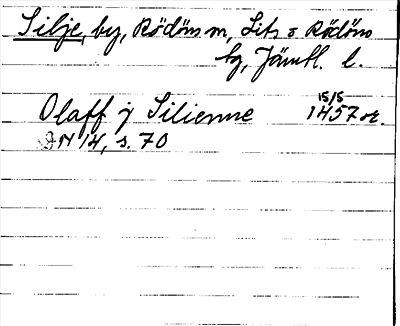 Silje, by, Rödöns sn, Lits o Rödöns
tg, Jämtl. l.
Olaff j Silienne 15/5 1457 or.
JN 14, s. 70